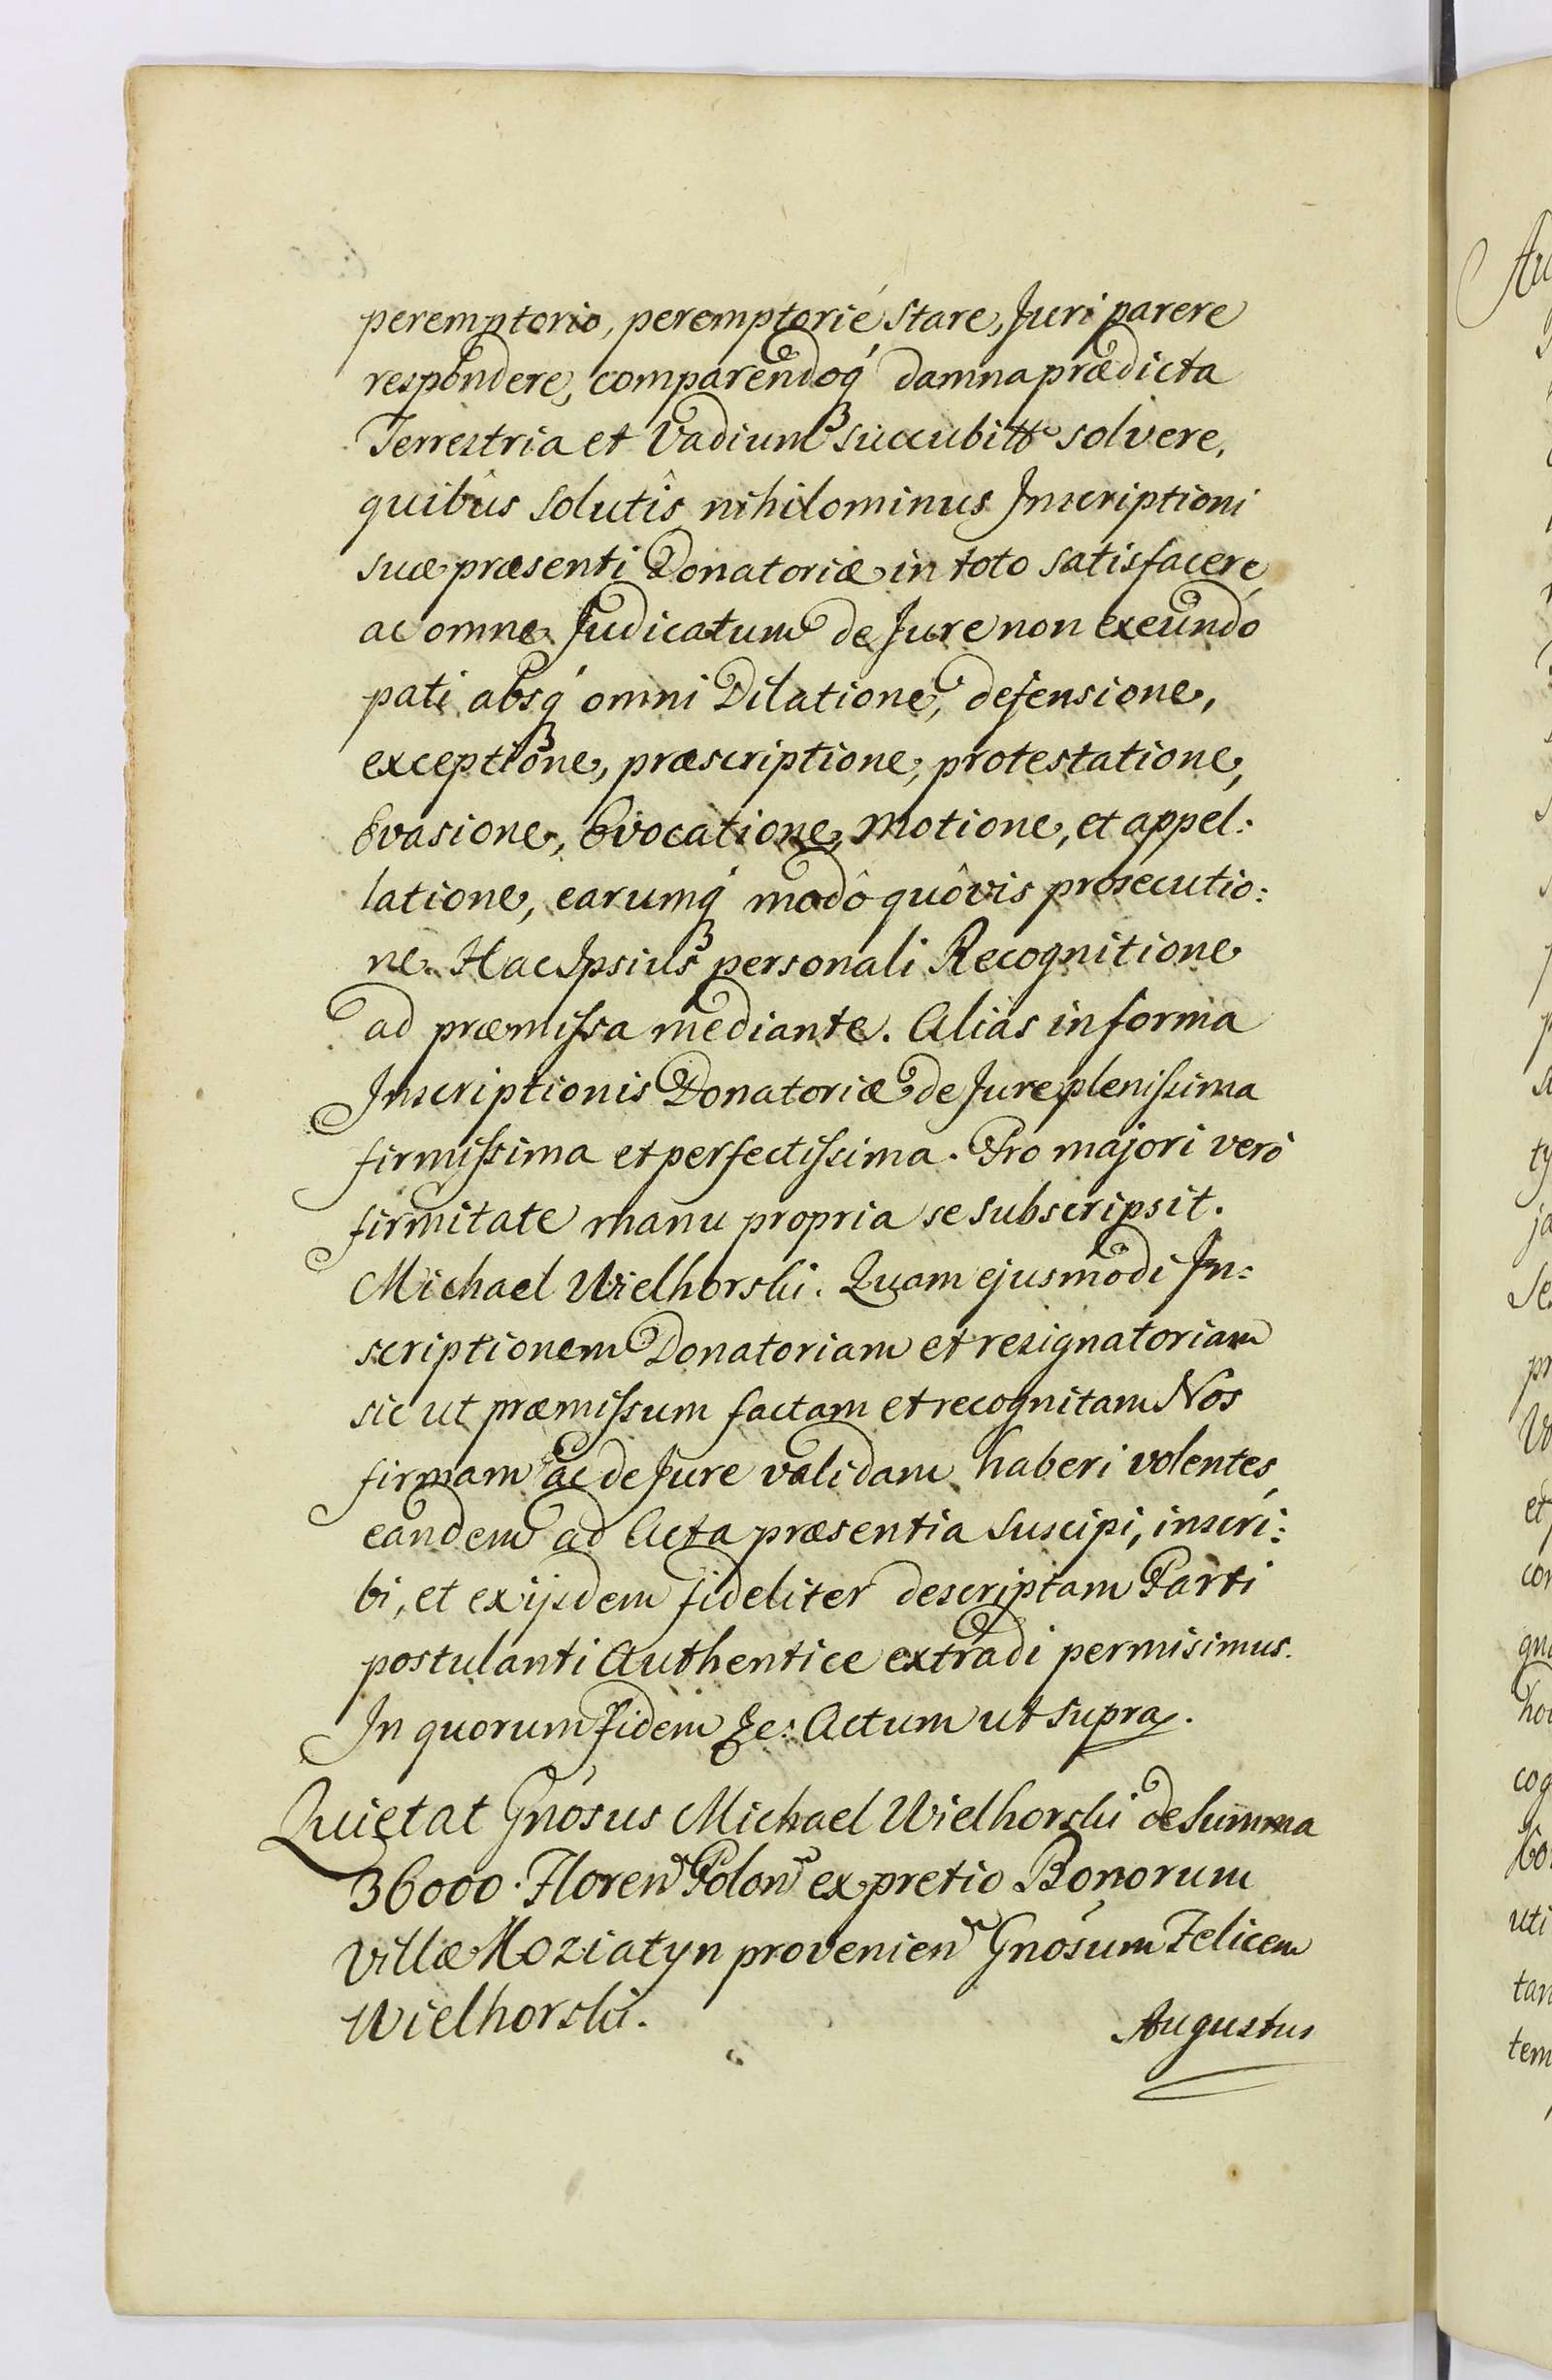 peremptorio, peremptorié stare, Juri parere
respondere, comparendoq́ damna prædicta
Terrestria et Vadium succubitt solvere,
quibûs solutîs nihilominus Inscriptioni
suæ præsenti Donatoriæ in toto satisfacere,
ac omne Judicatum de Jure non exeundo
pati absq́ omni Dilatione, defensione,
exceptione, præscriptione, protestatione,
Evasione, Evocatione, Motione, et appel:
latione, earumq́ modô quôvis prosecutio:
ne. Hac Ipsius personali Recognitione
ad præmissa mediante. Alias in forma
Inscriptionis Donatoriæ de Jure plenissima
firmissima et perfectissima. Pro majori verò
firmitate manu propria se subscripsit.
Michael Wielhorski. Quam ejusmodi In:
scriptionem Donatoriam et resignatoriam
sic ut præmissum factam et recognitam Nos
firmam ac de Jure validam haberi volentes,
eandem ad Acta præsentia suscipi, inscri:
bi, et ex ijsdem fideliter descriptam Parti
postulanti Authentice extradi permisimus.
In quorum fidem &c: Actum ut supra.
Quietat Gnosus Michael Wielhorski de summa
36000. Floren Polon ex pretio Bonorum
villæ Moziatyn provenien Gnosum Felicem
Wielhorski.
Augustus